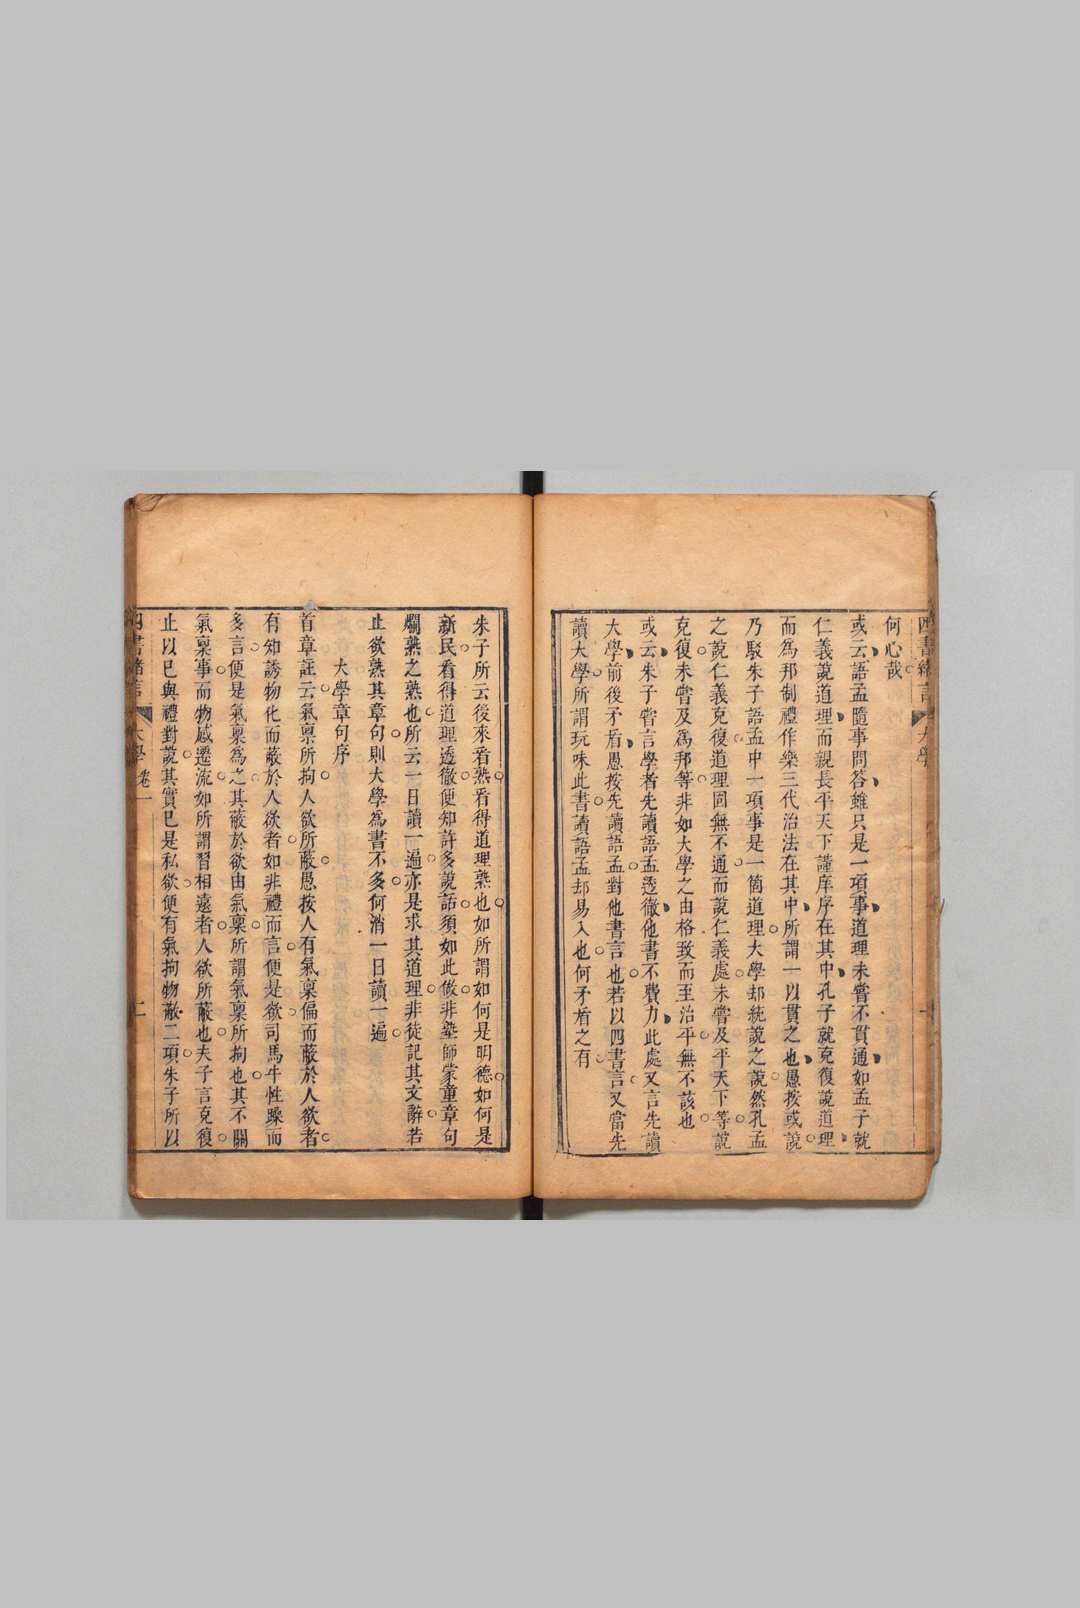 何心哉
或云語孟隨事問答雖只是一項事道理未嘗不貫通如孟子就
仁義說道理而親長平天下謹庠序在其中孔子就克復說道理
而為邦制禮作樂三代治法在其中所謂一以貫之也愚按或說
乃駁朱子語孟中一項事是一箇道理大學却統說之說然孔孟
之說仁義克復道理固無不通而說仁義處未嘗及平天下等說
克復未嘗及為邦等非如大學之由格致而至治平無不該也
或云朱子嘗言學者先讀語孟透徹他書不費力此處又言先讀
大學前後矛盾愚按先讀語孟對他書言也若以四書言又當先
讀大學所謂玩味此書讀語孟却易入也何矛盾之有
朱子所云後來看熟看得道理熟也如所謂如何是明德如何是
新民看得道理透徹便知許多說話須如此做非塾師蒙童章句
爛熟之熟也所云一日讀一遍亦是求其道理非徒記其文辭若
止欲熟其章句則大學為書不多何消一日讀一遍
大學章句序
首章註云氣稟所拘人欲所蔽愚按人有氣稟偏而蔽於人欲者
有知誘物化而蔽於人欲者如非禮而言便是欲司馬牛性躁而
多言便是氣稟為之其蔽於欲由氣稟所謂氣稟所拘也其不關
氣稟事而物感遷流如所謂習相遠者人欲所蔽也夫子言克復
止以已與禮對說其實已是私欲便有氣拘物蔽二項朱子所以
四書緒言
大學 卷一
二